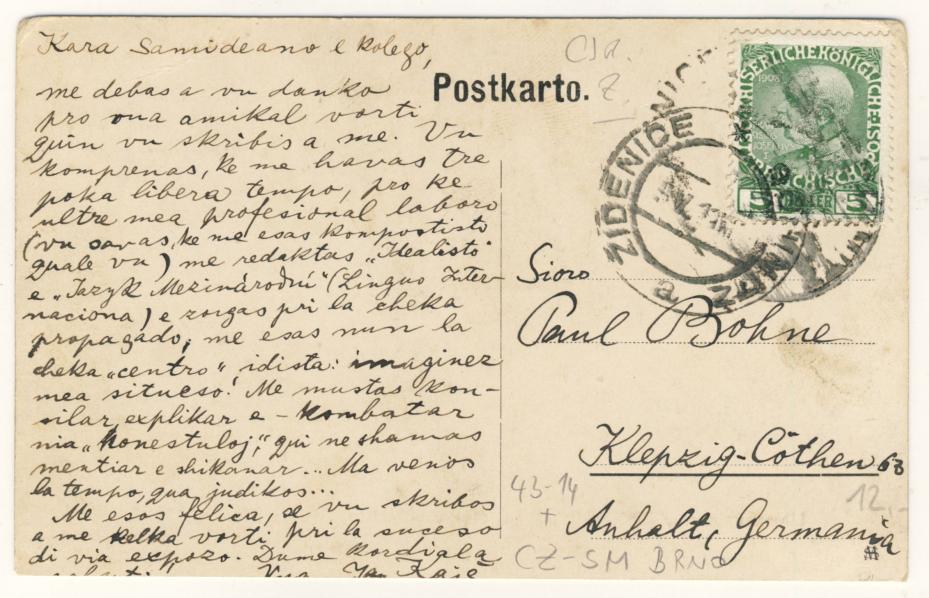 Kara Samideano e kolego,
me debas a vu danko
pro vua amikal vorti
quin vu skribis a me. Vu
komprenas, ke me havas tre
poka libera tempo, pro ke
ultre mea profesional laboro
(vu savas, ke me esas kompostisto
quale vu) me redaktas „Idealisto"
e „Jazyk Mezinárodní" (Linguo Inter-
naciona) e zorgas pri la cheka
propagado, me esas nun la
cheka „centro" idista: imaginez
mea situeso! Me mustas kon-
silar, explikar e - kombatar
nia „honestuloj", qui ne shamas
mentiar e shikanar... Ma venos
la tempo, qua judikos...
Me esos felica, se vu skribos
a me kelka vorti pri la suceso
di via expozo. Dume kordiala
Postkarto.
ŽIDENICE
a
KAISERLICHE KÖNIGLICHE ÖSTERREICHISCHE POST
1908
5 HELLER 5
Sioro
Paul Bohne
Klepzig-Cöthen 63
Anhalt, Germania
43-14
+
12,-
CZ-SM BRNO